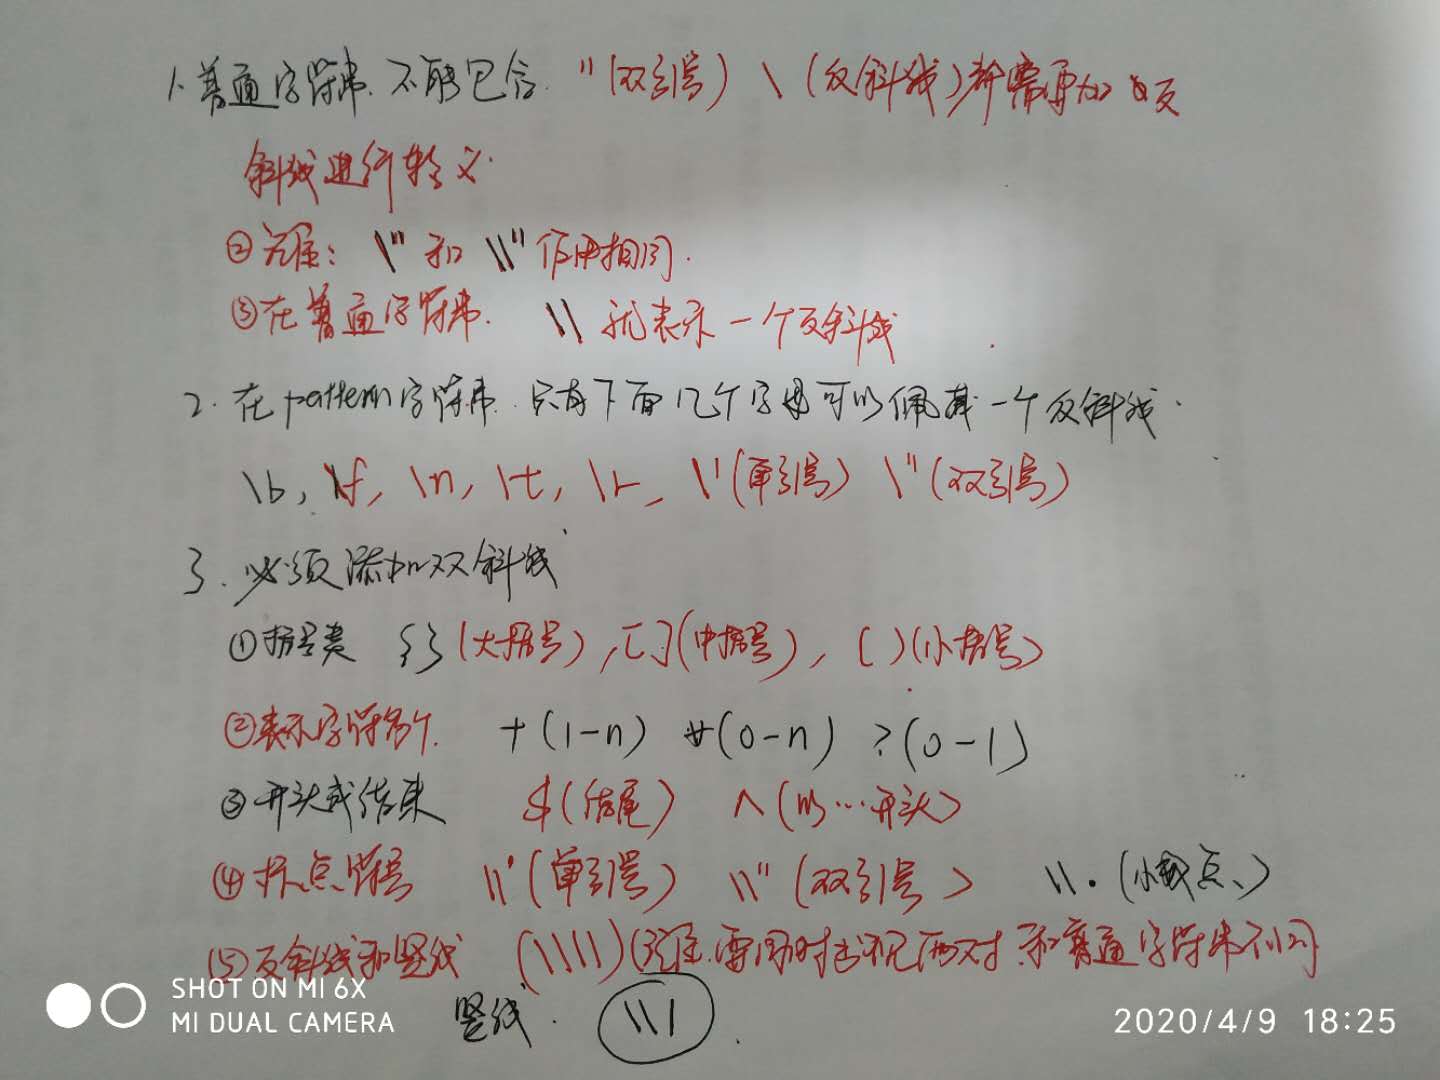 1. 普通字符串. 不能包含. "(双引号) \ (反斜线)都需要加 反
斜线进行转义.
② 注意: \" 和 \\" 作用相同.
③ 在普通字符串. \\ 就表示一个反斜线
2. 在pattern字符串. 只有下面几个字母可以佩其一个反斜线.
\b, \f, \n, \t, \r, \'(单引号) \"(双引号)
3. 必须添加双斜线
① 括号类 {} (大括号), [](中括号), ( )(小括号)
② 表示字符多个. +(1-n) *(0-n) ?(0-1)
③ 开头或结束 $(结尾) ^(以…开头)
④ 标点符号 \\'(单引号) \\"(双引号) \\.(小数点、)
(5) 反斜线和竖线 (\\\\)(注意.需同时出现两对.和普通字符串不同
竖线. \\|
SHOT ON MI 6X
MI DUAL CAMERA
2020/4/9 18:25